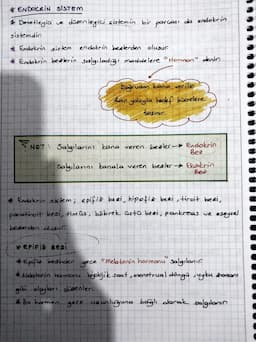 * ENDOKRİN SİSTEM
* Denetleyici ve düzenleyici sistemin bir parçası da endokrin
sistemdir.
* Endokrin sistem endokrin bezlerden oluşur.
* Endokrin bezlerin salgıladığı maddelere "Hormon" denir.
Doğrudan kana verilir
kan yoluyla hedef hücrelere
taşınır.
NOT: Salgılarını kana veren bezler → Endokrin
Bez
Salgılarını kanala veren bezler → Ekzokrin
Bez
* Endokrin sistem; epifiz bezi, hipofiz bezi, tiroit bezi,
paratiroit bezi, timüs, böbrek üstü bezi, pankreas ve eşeysel
bezlerden oluşur.
* EPİFİZ BEZİ
* Epifiz bezinden gece "Melatonin hormonu" salgılanır.
* Melatonin hormonu biyolojik saat, menstrual döngü, uyku
gibi olayları düzenler.
* Bu hormon gece uzunluğuna bağlı olarak salgılanır.